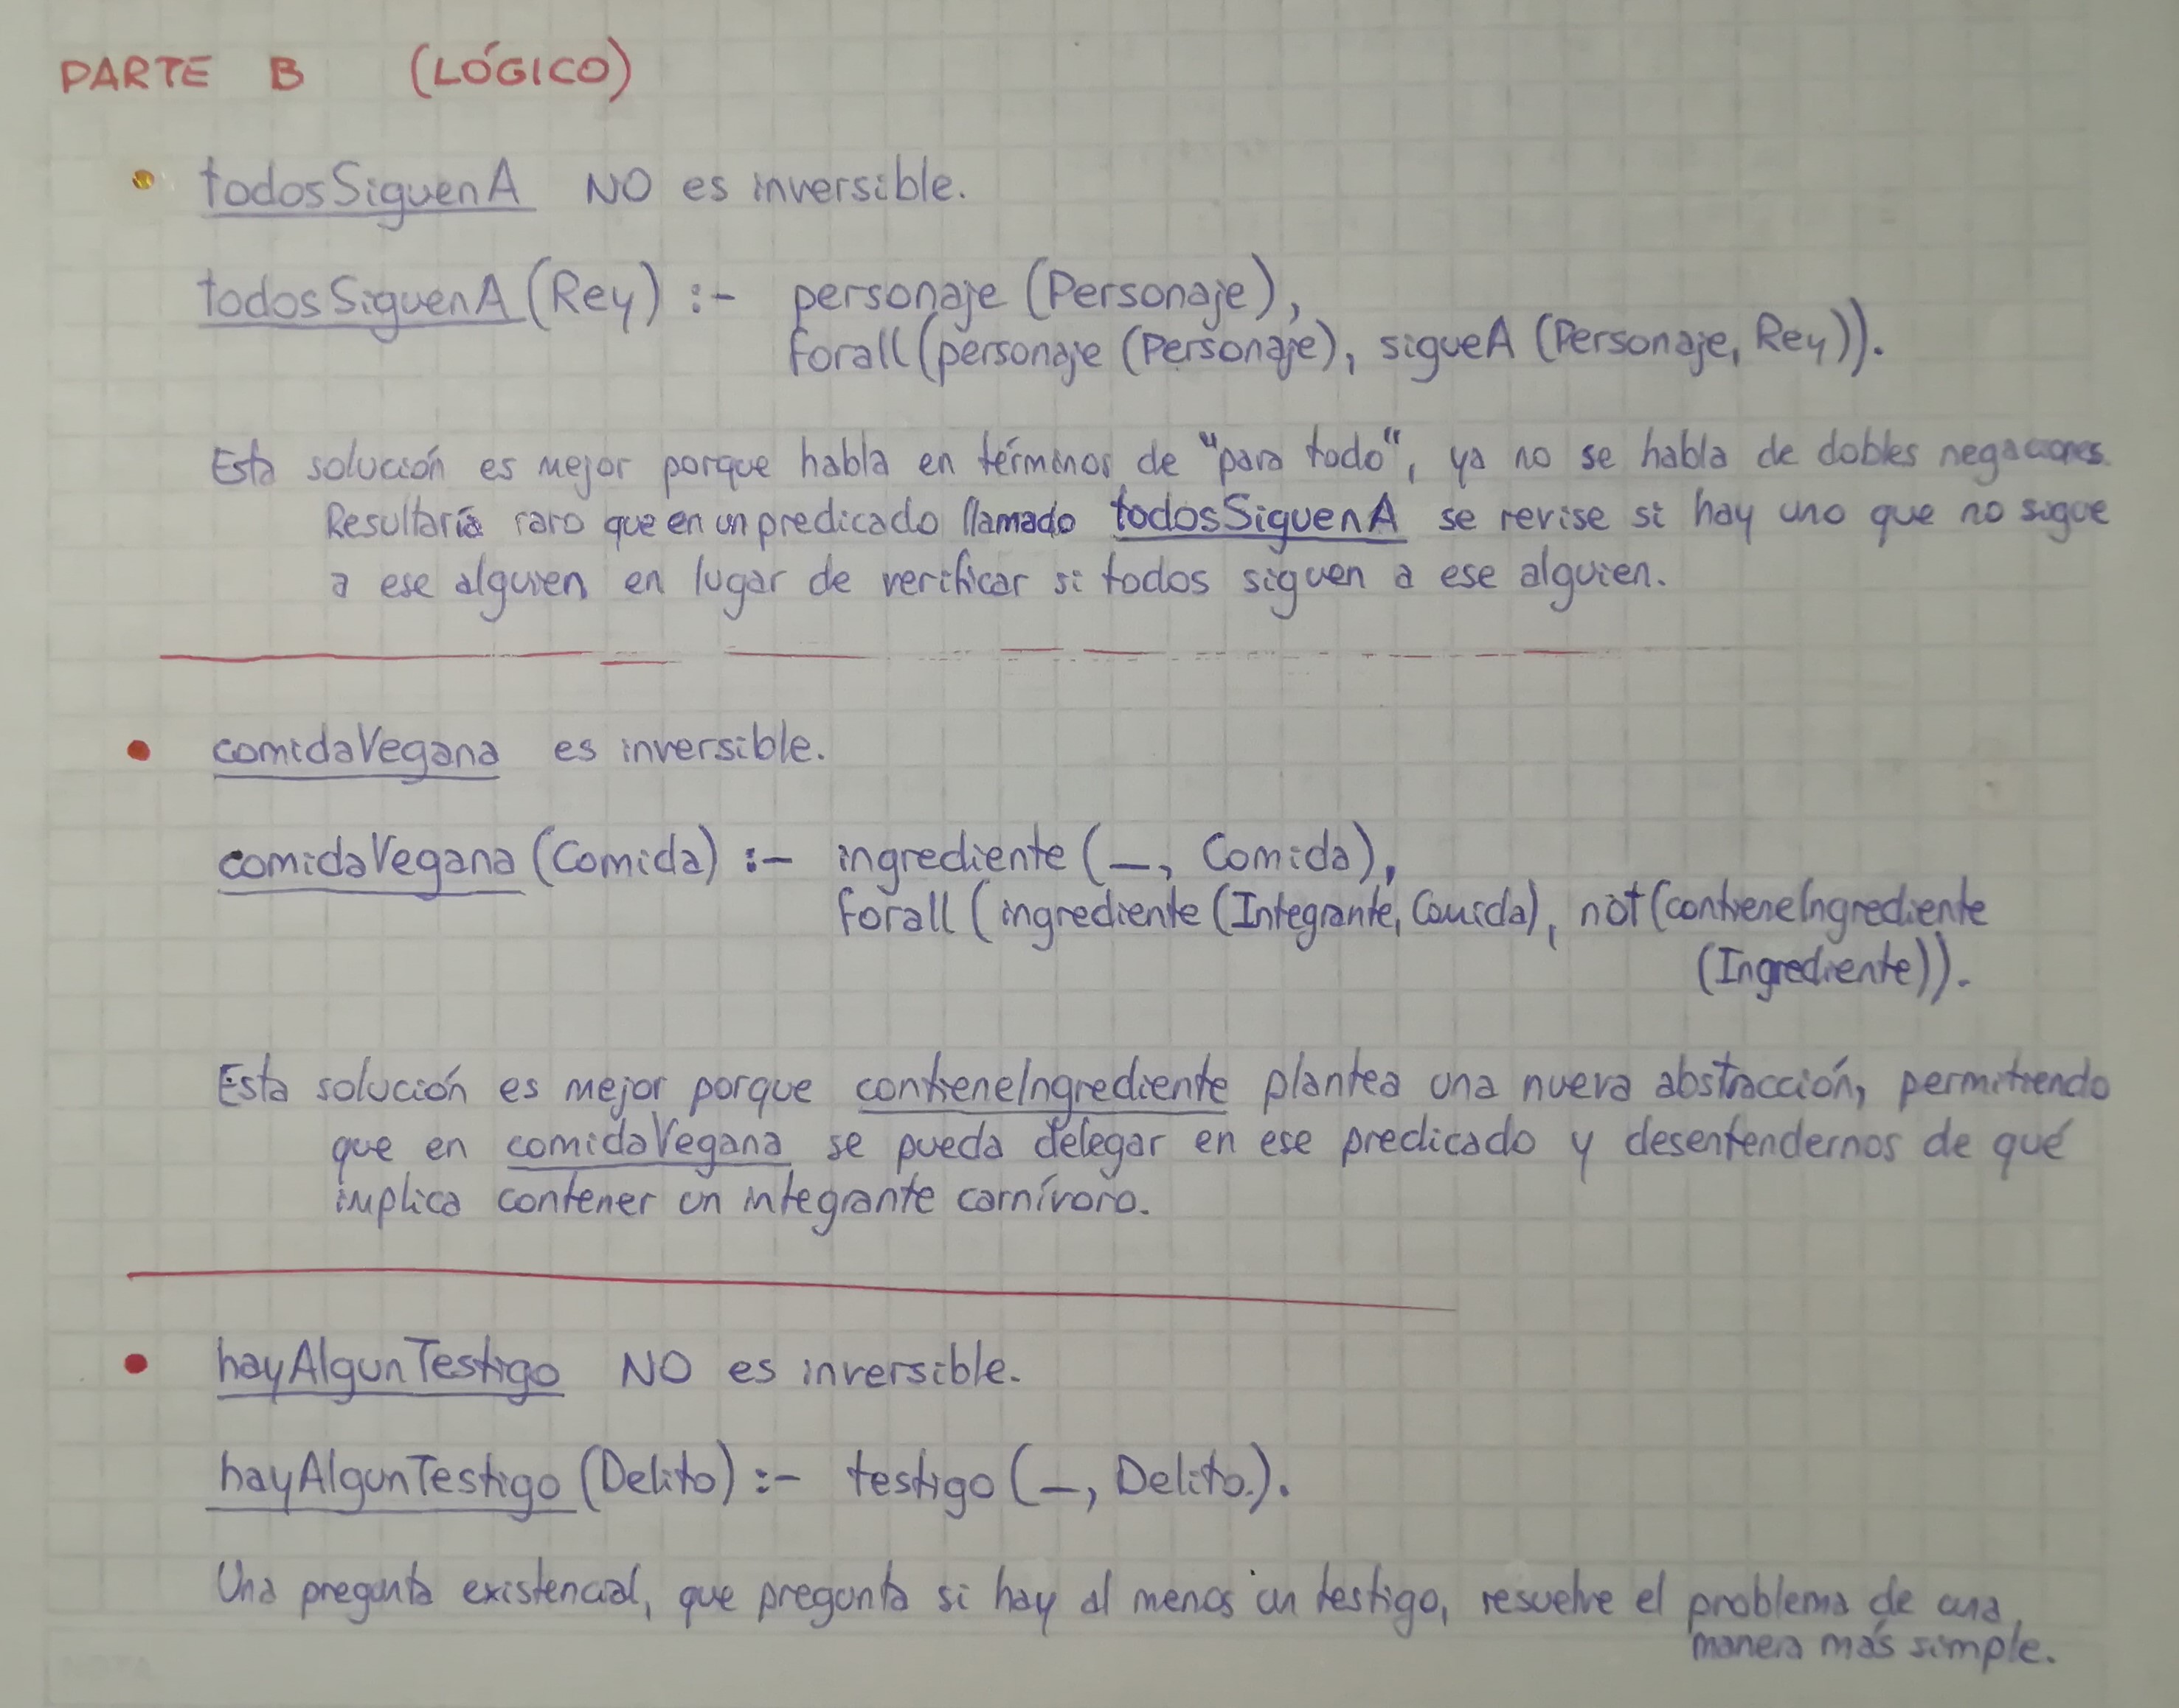 PARTE B (LÓGICO)
• todosSiguenA NO es inversible.
todosSiguenA (Rey) :- personaje (Personaje),
forall (personaje (Personaje), sigueA (Personaje, Rey)).
Esta solución es mejor porque habla en términos de "para todo", ya no se habla de dobles negaciones.
Resultaría raro que en un predicado llamado todosSiguenA se revise si hay uno que no sigue
a ese alguien en lugar de verificar si todos siguen a ese alguien.
• comidaVegana es inversible.
comidaVegana (Comida) :- ingrediente (_, Comida),
forall (ingrediente (Integrante, Comida), not (contieneIngrediente
(Ingrediente)).
Esta solución es mejor porque contieneIngrediente plantea una nueva abstracción, permitiendo
que en comidaVegana se pueda delegar en ese predicado y desentendernos de qué
implica contener un integrante carnívoro.
• hayAlgunTestigo NO es inversible.
hayAlgunTestigo (Delito) :- testigo (_, Delito).
Una pregunta existencial, que pregunta si hay al menos un testigo, resuelve el problema de una
manera más simple.